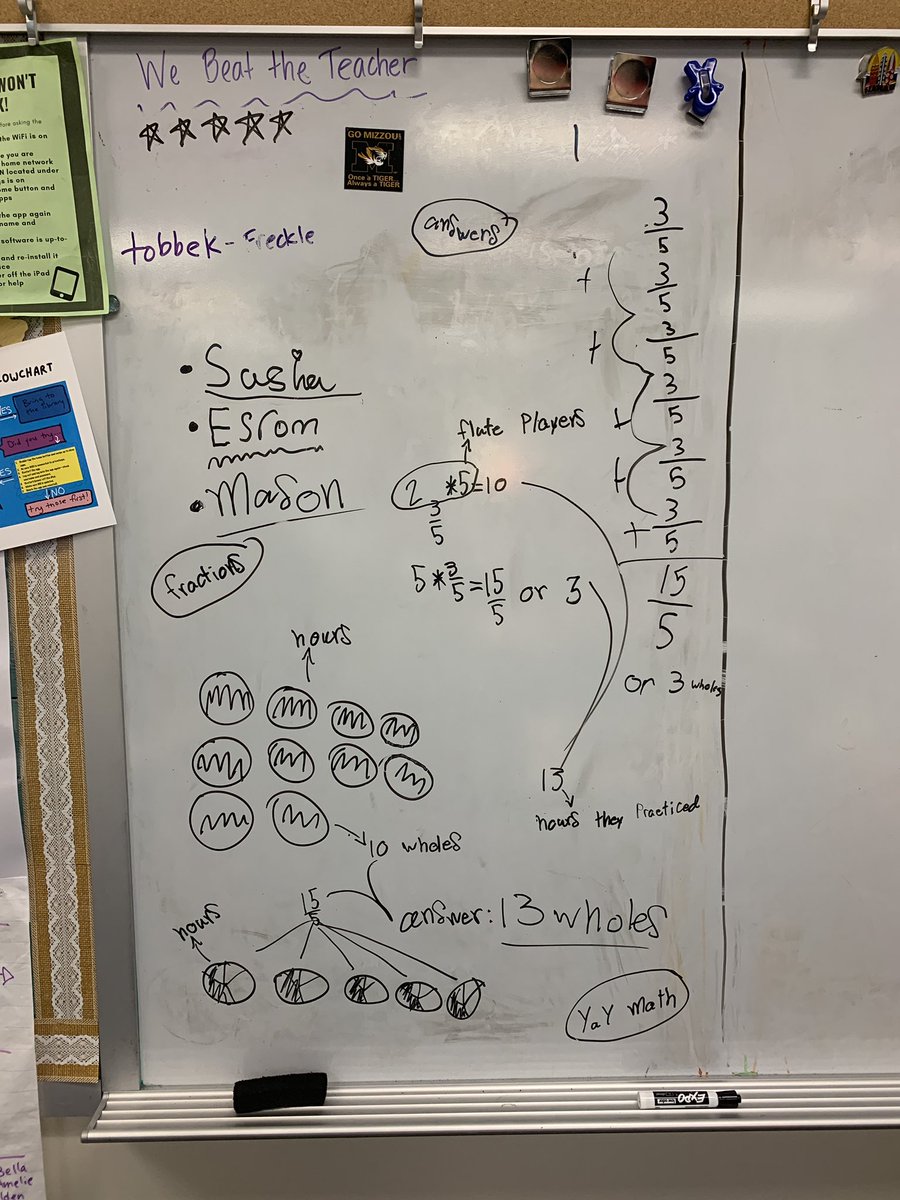 We Beat the Teacher
GO MIZZOU!
M
Once a TIGER
Always a TIGER
tobbek - Freckle
answers
• Sasha
• Esrom
• Mason
fractions
3/5
+ 3/5
+ 3/5
+ 3/5
+ 3/5
+ 3/5
15/5
or 3 wholes
flute Players
2 3/5 *5=10
5 * 3/5 = 15/5 or 3
13
hours they Practiced
hours
10 wholes
15/5
answer: 13 wholes
hours
YaY math
EXPO
WON'T
K!
fore asking the
the WiFi is on
e you are
home network
N located under
gs is on
ome button and
pps
the app again
name and
software is up-to-
and re-install it
ce
r off the iPad
or help
LOWCHART
YES
Bring to
the library
Did you try
YES
NO
try those first!
Bella
Amelie
lden